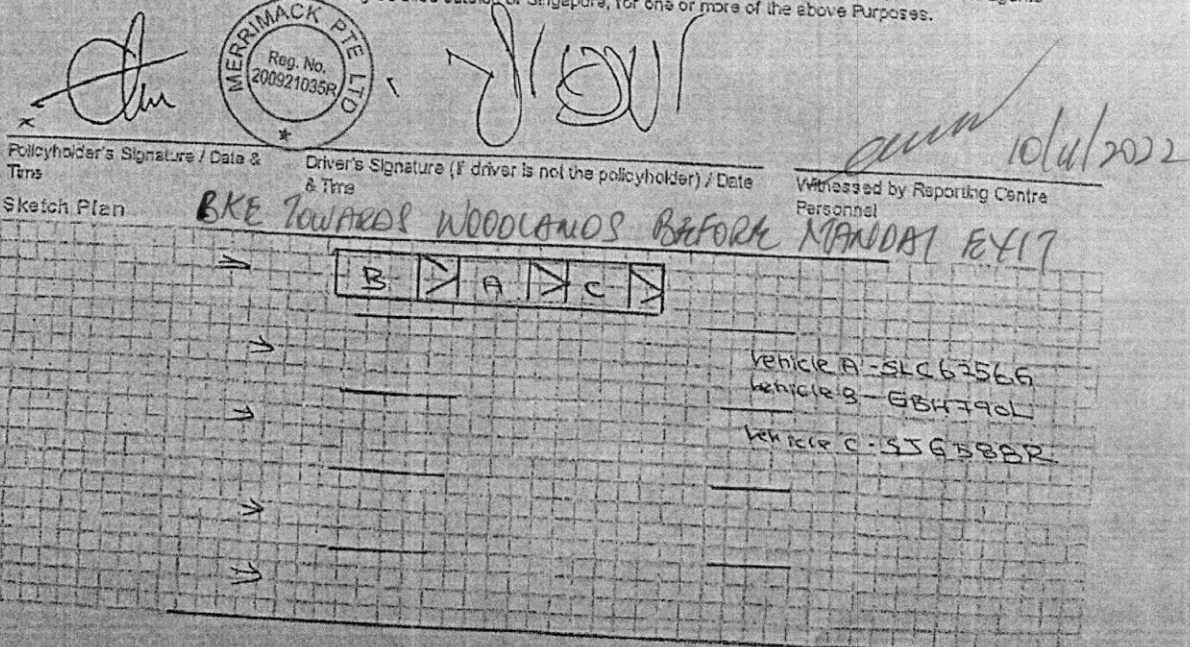 Singapore, for one or more of the above Purposes.
MERRIMACK PTE LTD
Reg. No.
200921035R
10/11/2022
Policyholder's Signature / Date &
Time
Driver's Signature (if driver is not the policyholder) / Date
& Time
Witnessed by Reporting Centre
Personnel
Sketch Plan
BKE TOWARDS WOODLANDS BEFORE MANDAI EXIT
B A C
Vehicle A - SLC6256G
Vehicle B - GBH790L
Vehicle C - SJG588R